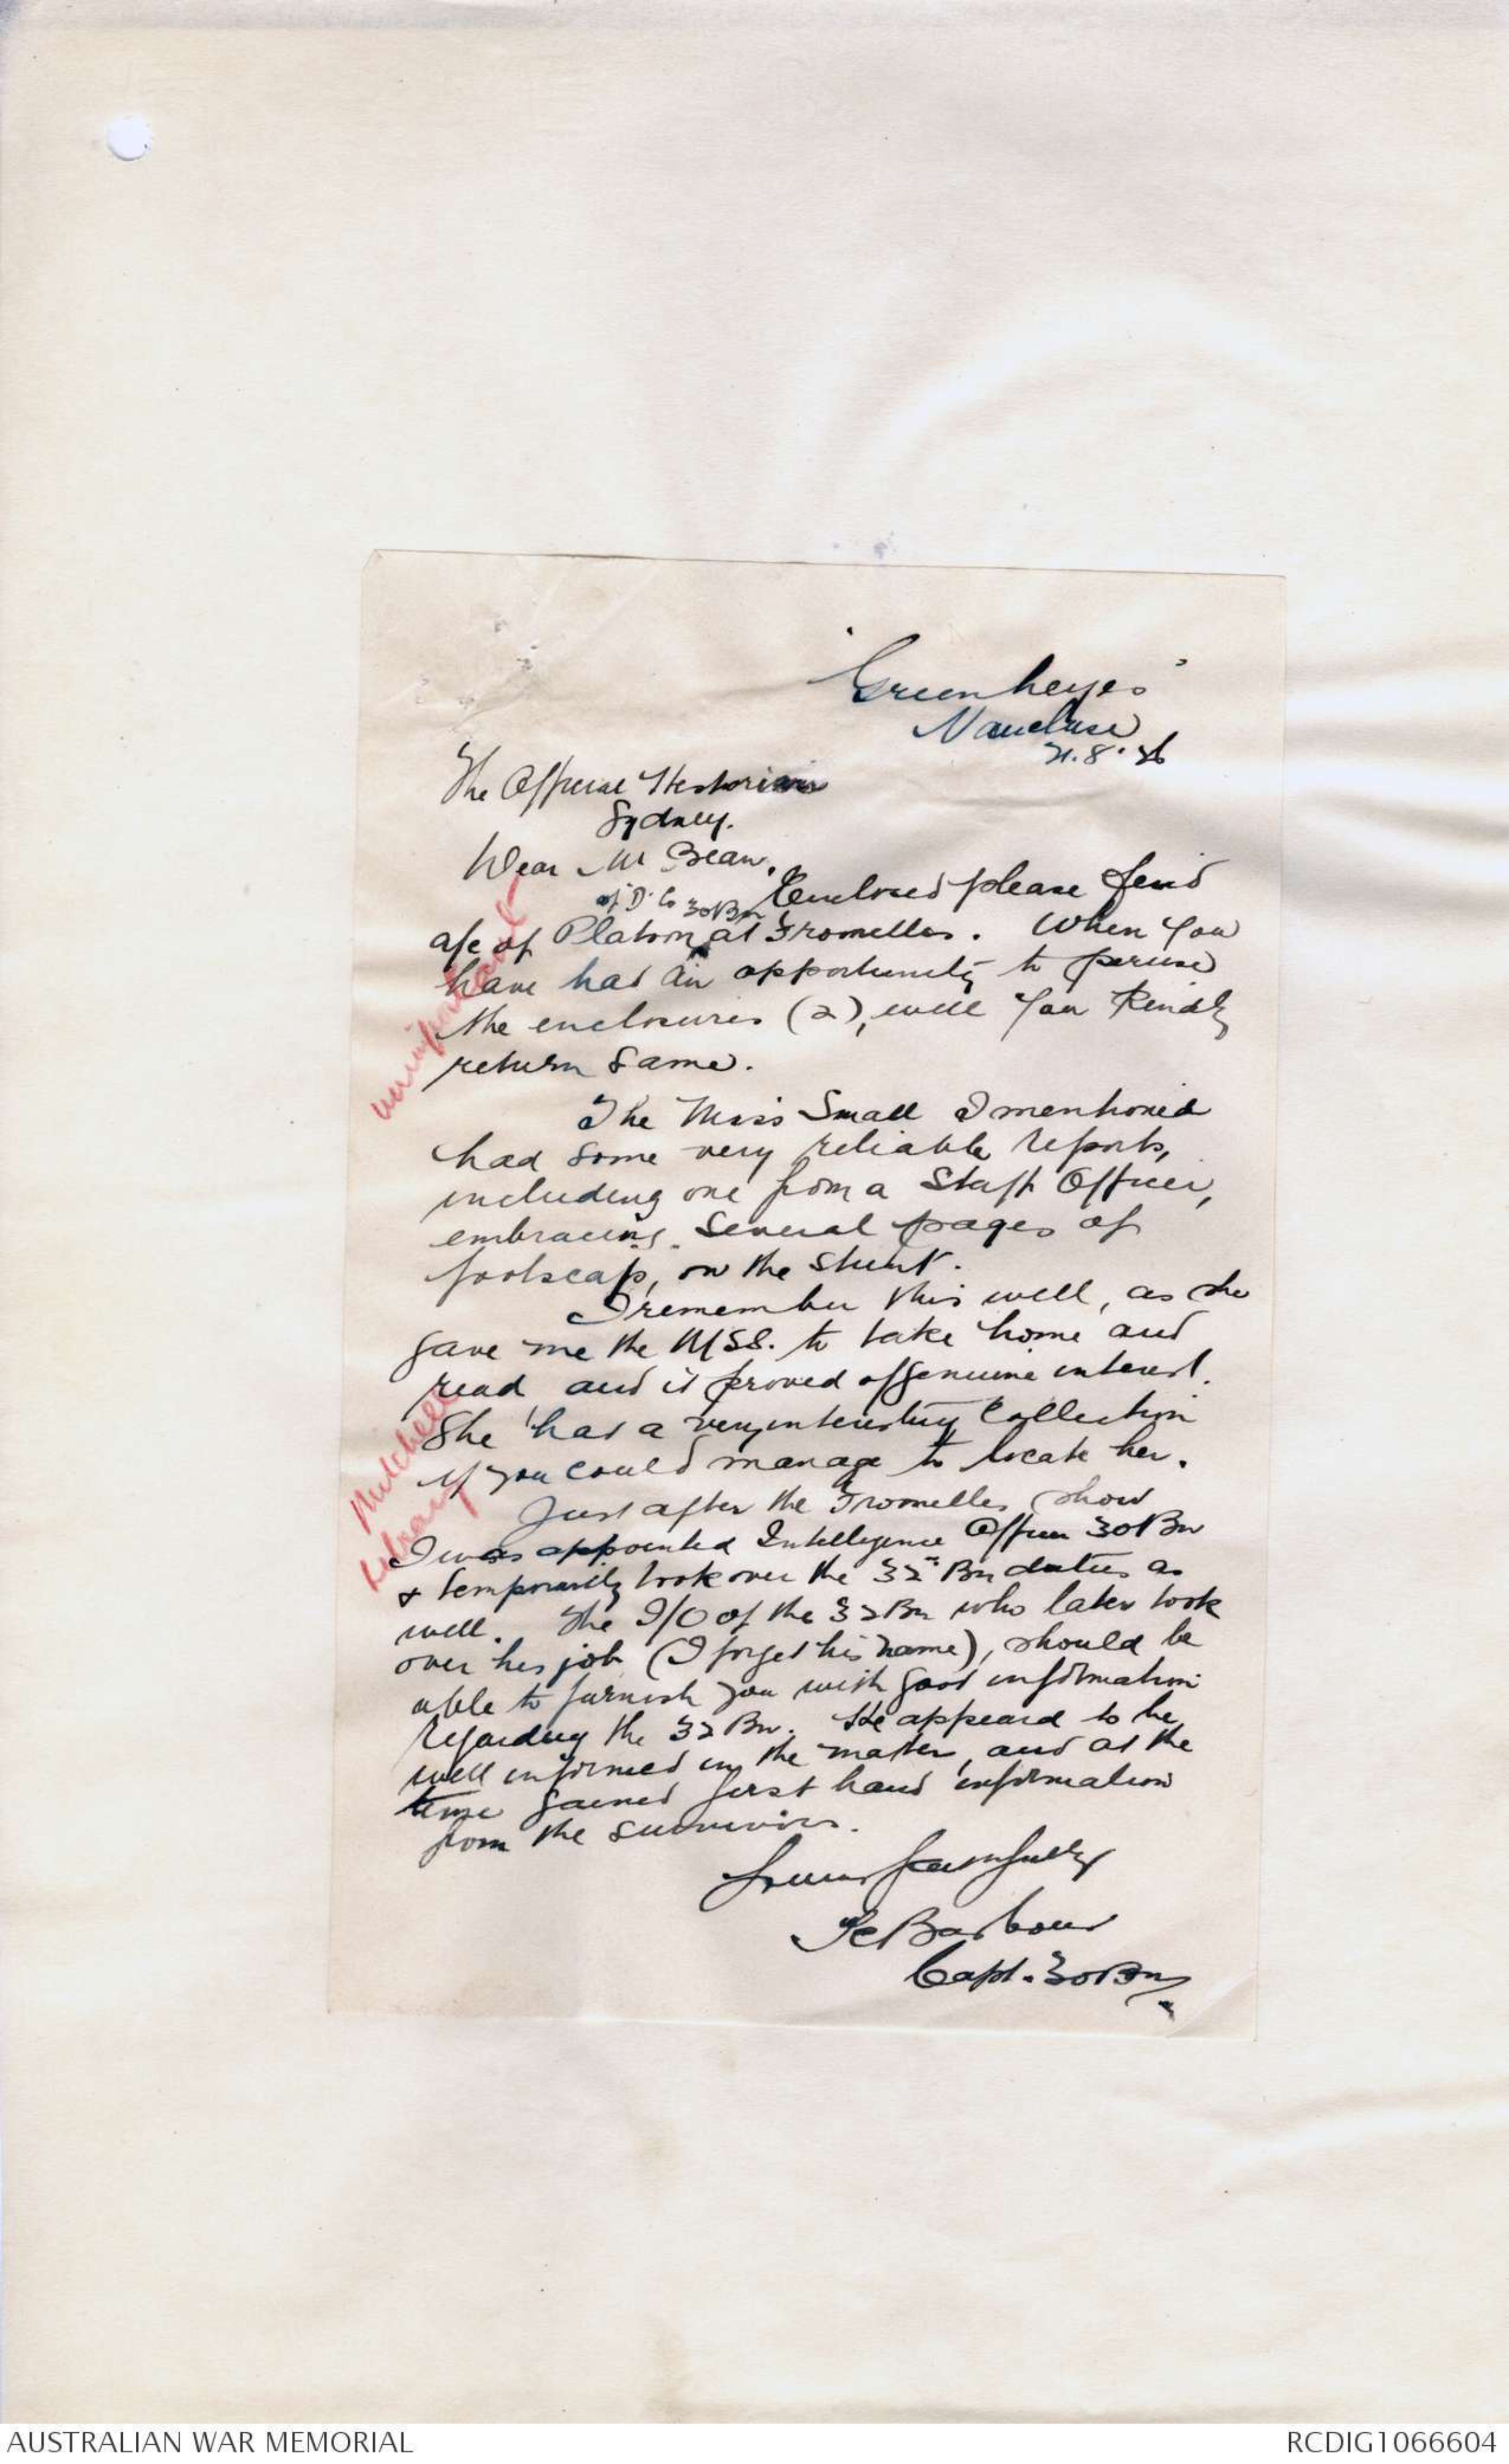 "Greenheyes"
Vaucluse
21.8.26
The Official Historian
Sydney.
Dear Mr Bean,
Enclosed please find
of D. Co 30Bn
a/c of Platoon at Fromelles. When you
have had an opportunity to peruse
the enclosures (2), will you kindly
return same.
unimportant
The Miss Small I mentioned
had some very reliable reports,
including one from a Staff Officer,
embracing several pages of
foolscap, on the stunt.
I remember this well, as she
gave me the MSS. to take home and
read and it proved of genuine interest.
She has a very interesting collection
if you could manage to locate her.
Mitchell
Library
Just after the Fromelles show
I was appointed Intelligence Officer 30Bn
& temporarily took over the 32nd Bn duties as
well. The I/O of the 32Bn who later took
over his job (I forget his name), should be
able to furnish you with good information
regarding the 32 Bn. He appeared to be
well informed in the matter, and at the
time gained first hand information
from the survivors.
Yours faithfully
Barbour
Capt. 30Bn
AUSTRALIAN WAR MEMORIAL
RCDIG1066604